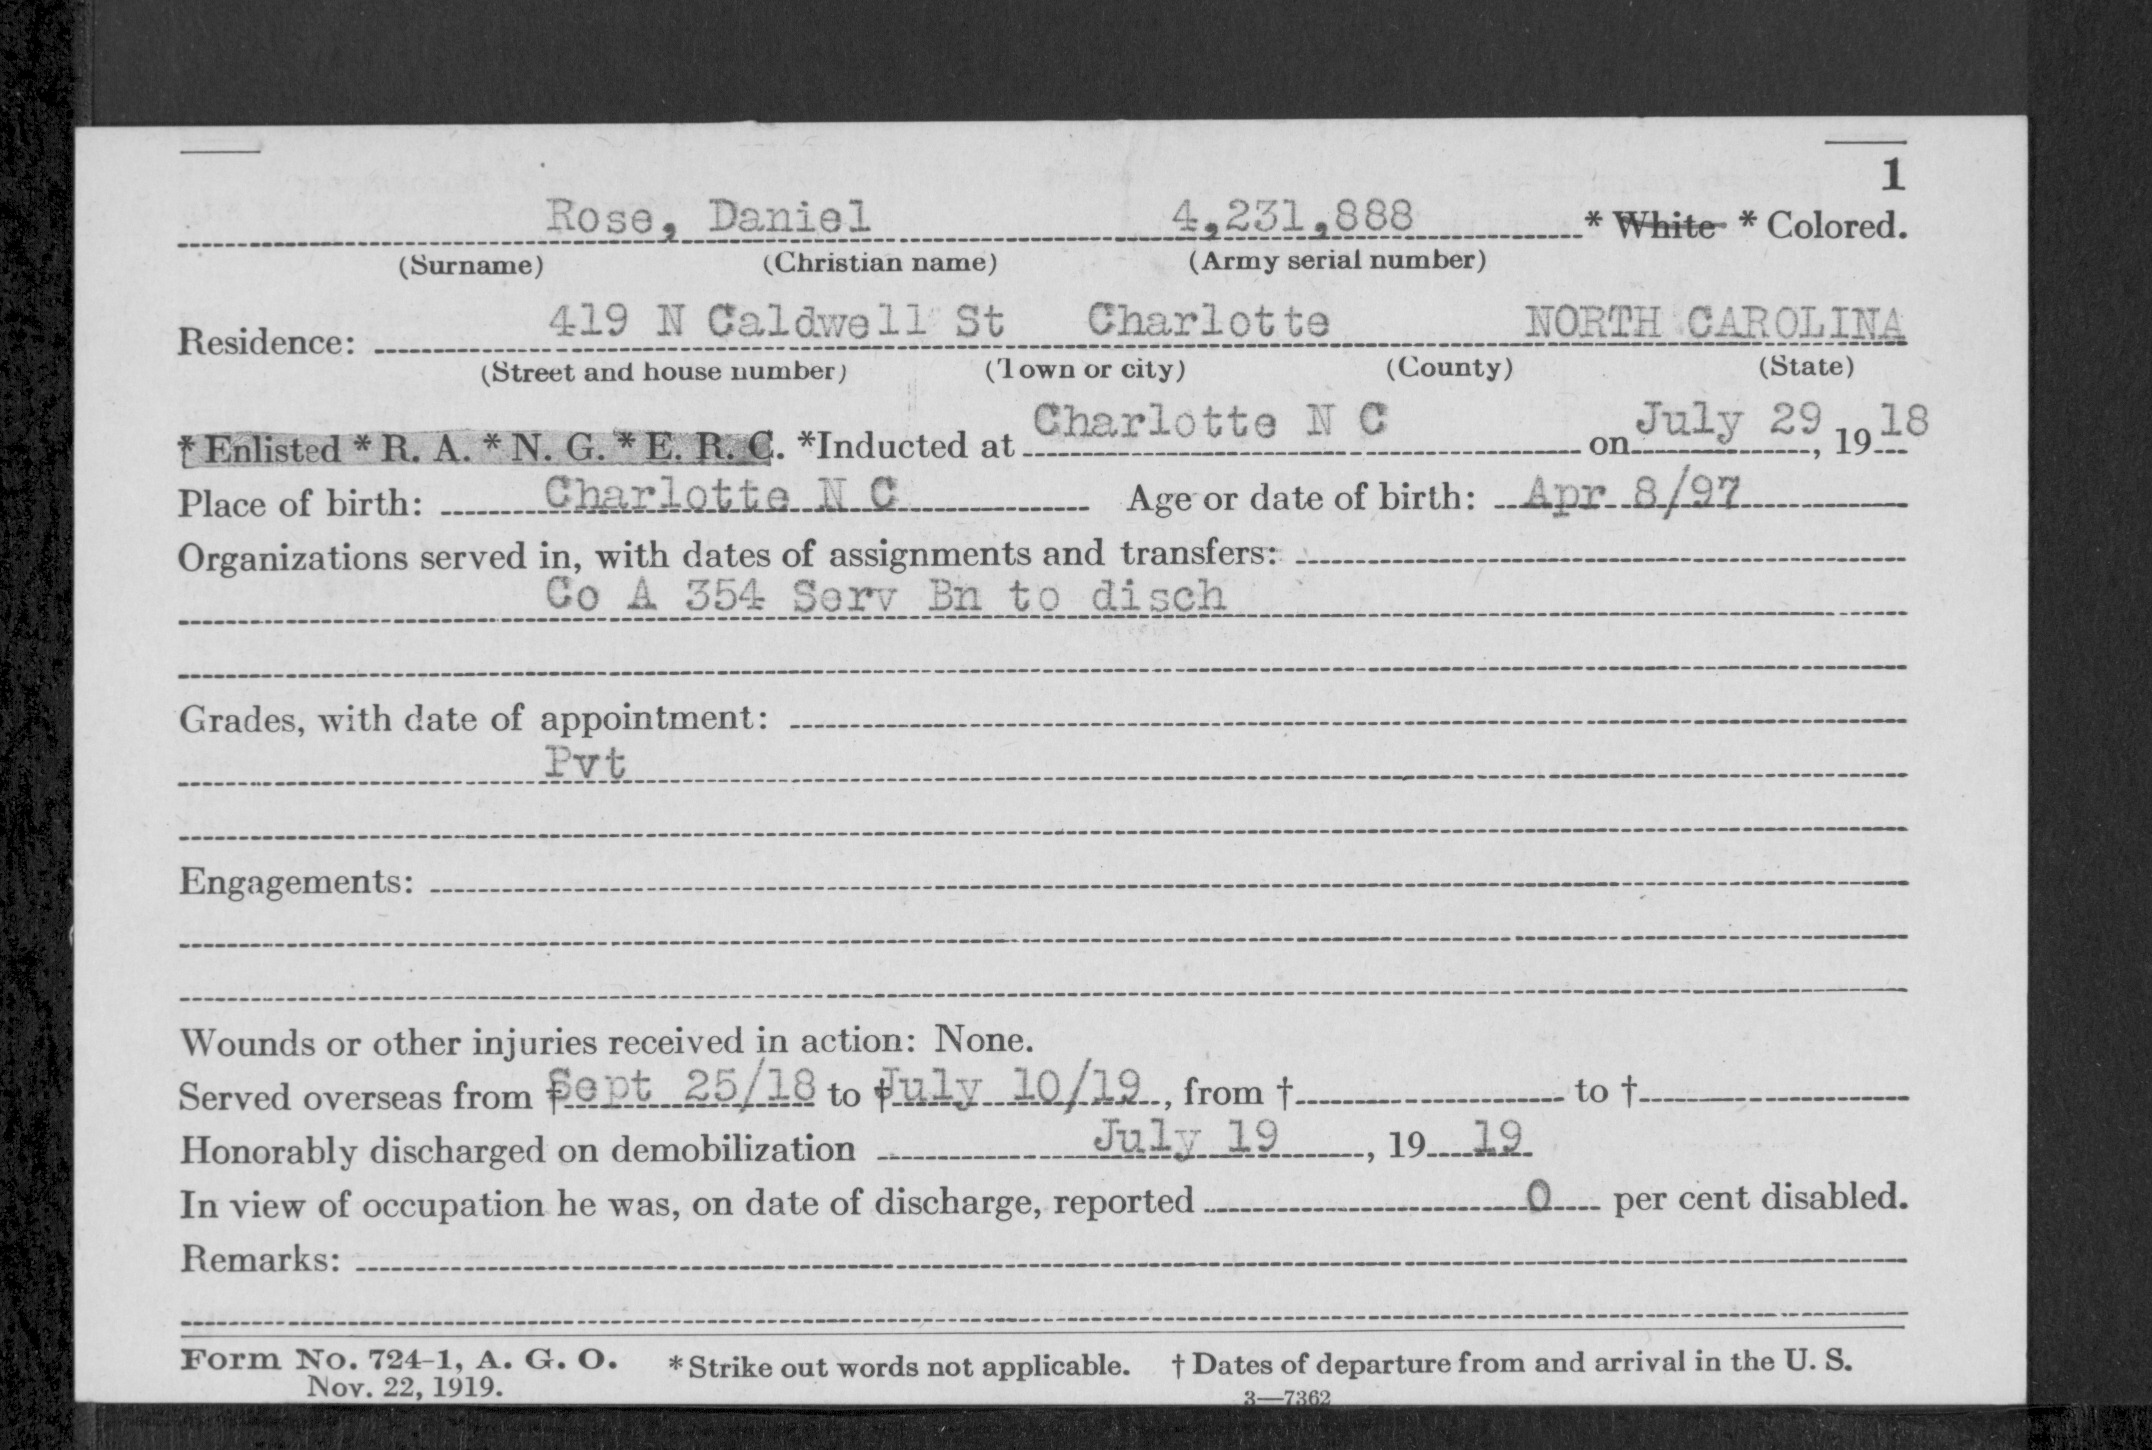 1
Rose, Daniel 4,231,888 * White * Colored.
(Surname) (Christian name) (Army serial number)
Residence: 419 N Caldwell St Charlotte NORTH CAROLINA
(Street and house number) (Town or city) (County) (State)
* Enlisted * R. A. * N. G. * E. R. C. *Inducted at Charlotte N C on July 29, 1918
Place of birth: Charlotte N C Age or date of birth: Apr 8/97
Organizations served in, with dates of assignments and transfers:
Co A 354 Serv Bn to disch
Grades, with date of appointment:
Pvt
Engagements:
Wounds or other injuries received in action: None.
Served overseas from † Sept 25/18 to † July 10/19, from † to †
Honorably discharged on demobilization July 19, 19 19
In view of occupation he was, on date of discharge, reported 0 per cent disabled.
Remarks:
Form No. 724-1, A. G. O. * Strike out words not applicable. † Dates of departure from and arrival in the U. S.
Nov. 22, 1919.
3—7362